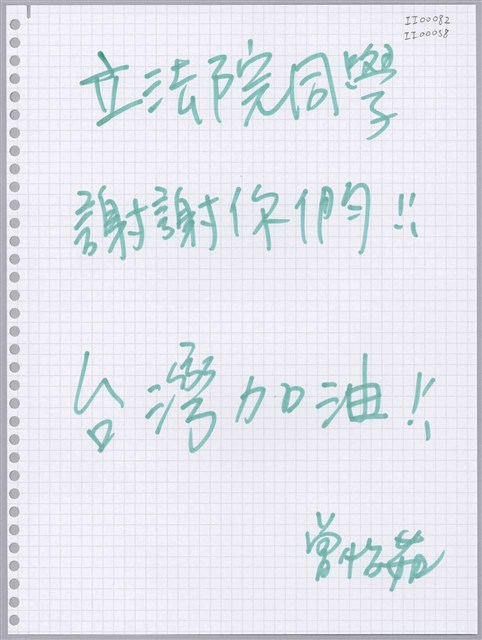 II00082
II00058
立法院同學
謝謝你們!!
台灣加油!!
曾怡茹